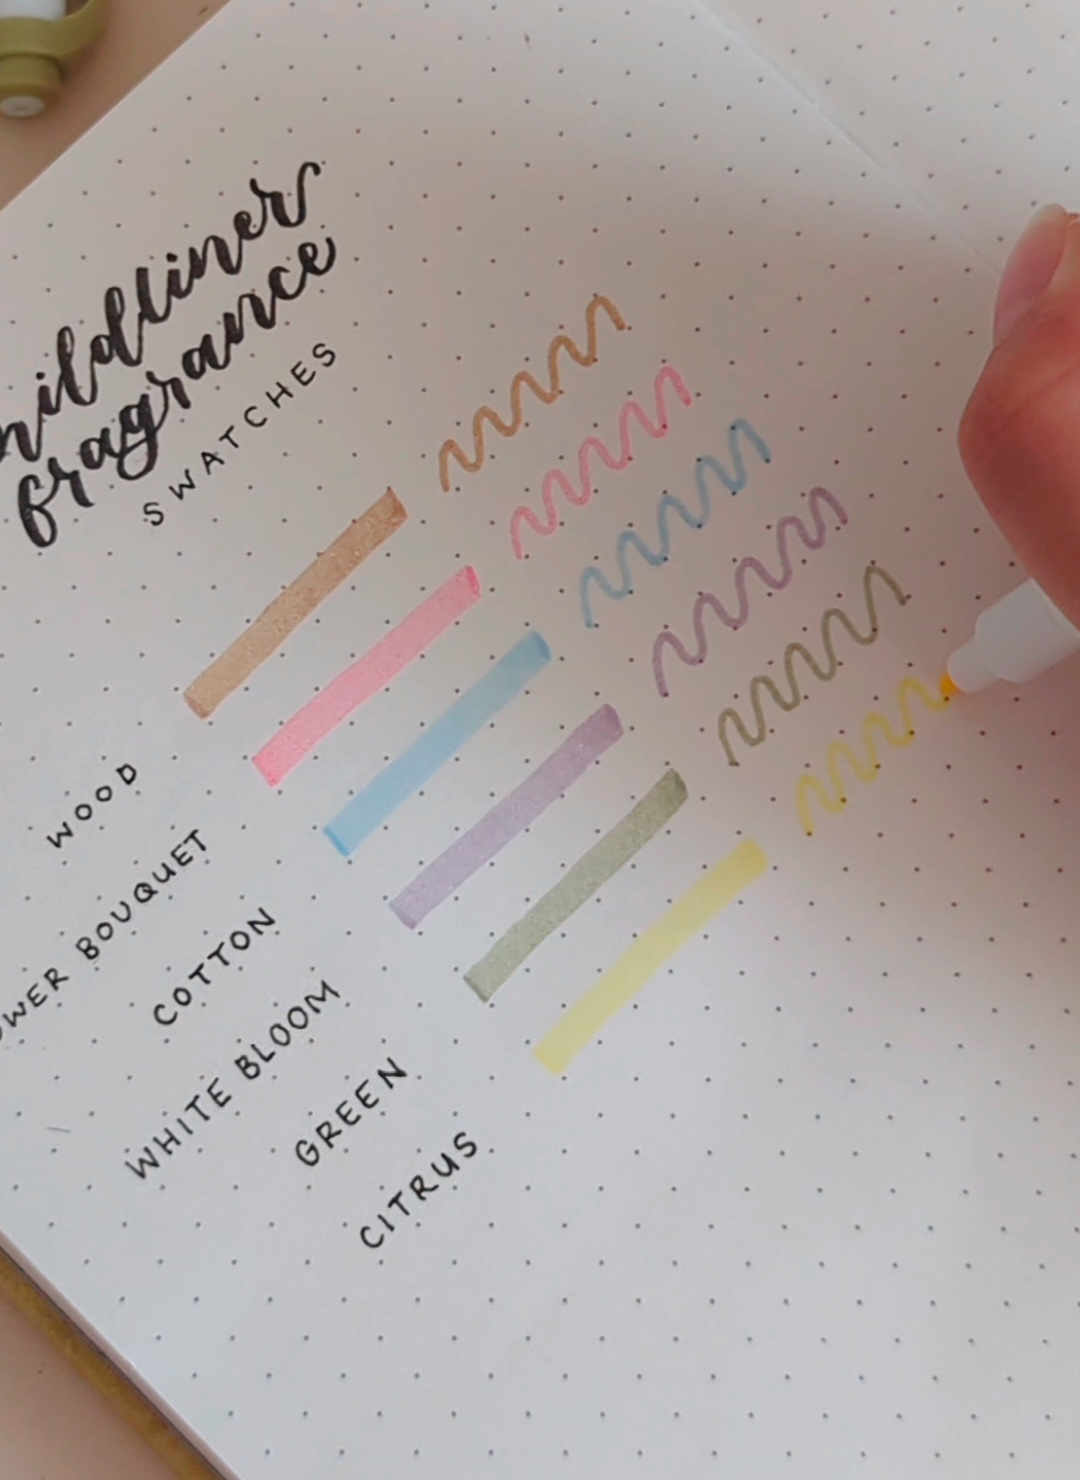 mildliner
fragrance
SWATCHES
WOOD
OWER BOUQUET
COTTON
WHITE BLOOM
GREEN
CITRUS